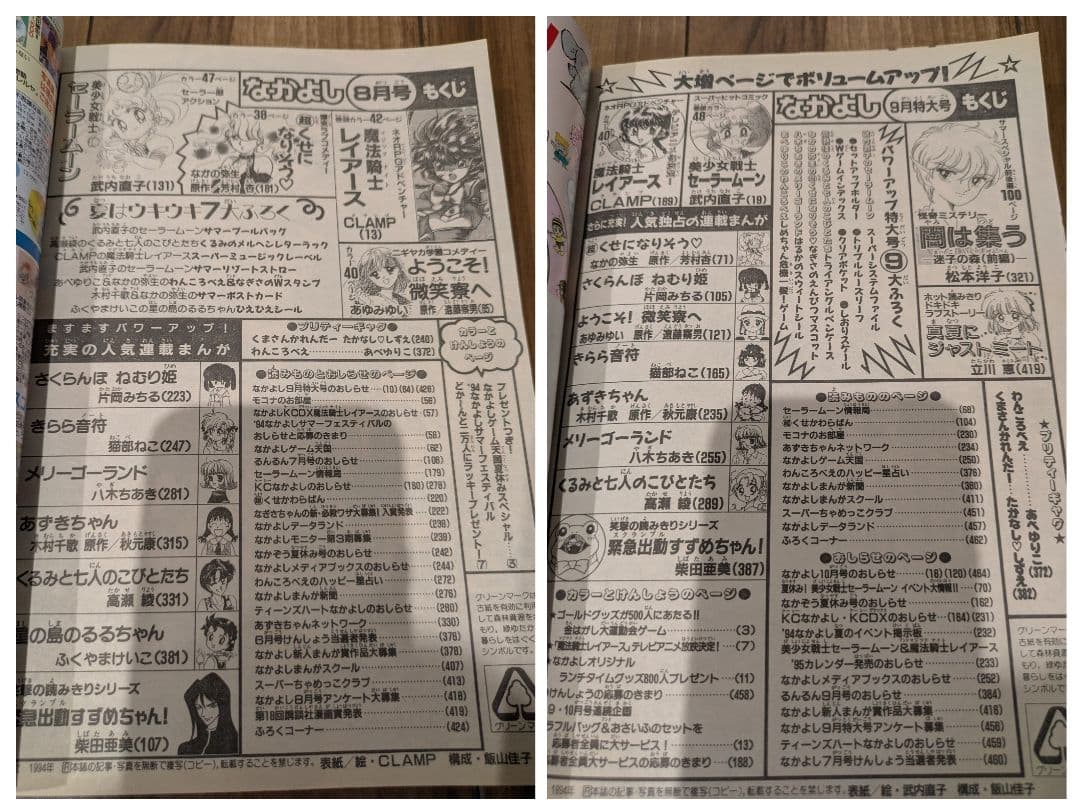 カラー47ページ
美少女戦士
セーラームーン
武内直子(131)
セーラー服
アクション
カラー38ページ
(超)くせに
なりそう♡
なかの弥生
原作/芳村杏(181)
なかよし 8月号 もくじ
巻頭カラー42ページ
ネオRPGアドベンチャー
魔法騎士
レイアース
CLAMP
(13)
夏はウキウキ7大ふろく
武内直子のセーラームーンサマープールバッグ
高瀬綾のくるみと七人のこびとたちくるみのメルヘンレターラック
CLAMPの魔法騎士レイアーススーパーミュージックレーベル
武内直子のセーラームーンサマーリゾートストロー
あべゆりこ&なかの弥生のわんころべえ&なぎさのWスタンプ
木村千歌&なかの弥生のサマーポストカード
ふくやまけいこの星の島のるるちゃんひえひえシール
カラー
40
ページ
ニギヤカ学園コメディー
ようこそ!
微笑寮へ
あゆみゆい 原作/遠藤察男(85)
ますますパワーアップ!
充実の人気連載まんが
さくらんぼ ねむり姫
片岡みちる(223)
きらら音符
猫部ねこ(247)
メリーゴーランド
八木ちあき(281)
あずきちゃん
木村千歌 原作/秋元康(315)
くるみと七人のこびとたち
高瀬 綾(331)
星の島のるるちゃん
ふくやまけいこ(381)
笑撃の読みきりシリーズ
緊急出動すずめちゃん!
柴田亜美(107)
●プリティーギャグ●
くまさんかれんだー たかなし♡しずえ(240)
わんころべえ………あべゆりこ(372)
●読みものとおしらせのページ●
なかよし9月特大号のおしらせ…(10)(64)(426)
モコナのお部屋………(56)
なかよしKCDX魔法騎士レイアースのおしらせ(57)
'94なかよしサマーフェスティバルの
おしらせと応募のきまり………(58)
なかよしゲーム天国………(62)
るんるん7月号のおしらせ………(106)
セーラームーン情報局………(179)
KCなかよしのおしらせ………(180)(278)
(超)くせかわらばん………(220)
なぎさちゃんの新・必殺ワザ大募集!入賞発表…(222)
なかよしデータランド………(238)
なかよしモニター第3期募集………(239)
なかぞう夏休み号のおしらせ………(242)
なかよしメディアブックスのおしらせ………(244)
わんころべえのハッピー星占い………(272)
なかよしまんが新聞………(276)
ティーンズハートなかよしのおしらせ………(280)
あずきちゃんネットワーク………(330)
6月号けんしょう当選者発表………(376)
なかよし新人まんが賞作品大募集………(378)
なかよしまんがスクール………(407)
スーパーちゃめっこクラブ………(413)
なかよし8月号アンケート大募集………(418)
第18回講談社漫画賞発表………(419)
ふろくコーナー………(424)
カラーと
けんしょうの
ページ
プレゼントつき!
なかよしゲーム天国夏休みスペシャル………(5)
'94なかよしサマーフェスティバル
どかーんと二万人にラッキープレゼント!(7)
グリーンマークは
古紙を有効に利用
1994年 R本誌の記事・写真を無断で複写(コピー)、転載することを禁じます。 表紙/絵・CLAMP 構成・飯山佳子
大増ページでボリュームアップ!
ネオRPGアドベンチャー
カラー
40
魔法騎士
レイアース
CLAMP(189)
スーパーヒットコミック
巻頭カラー
48
ページ
美少女戦士
セーラームーン
武内直子(19)
なかよし 9月特大号 もくじ
サマースペシャル前後編
100
ページ
怪奇ミステリー
闇は集う
迷子の森(前編)
松本洋子(321)
ホット読みきり
ドキドキ
ラブストーリー
真夏に
ジャストミート
立川 恵(419)
パワーアップ特大号⑨大ふろく
スーパーシステムファイル
●セットアップホルダー ●トリプルルーズリーフ ●しおりスケール
●Wゲームインデックス ●クリアポケット
さらに充実!人気独占の連載まんが
(超)くせになりそう♡
なかの弥生 原作/芳村杏(71)
さくらんぼ ねむり姫
片岡みちる(105)
ようこそ!微笑寮へ
あゆみゆい 原作/遠藤察男(121)
きらら音符
猫部ねこ(165)
あずきちゃん
木村千歌 原作/秋元康(235)
メリーゴーランド
八木ちあき(255)
くるみと七人のこびとたち
高瀬 綾(289)
笑撃の読みきりシリーズ
緊急出動すずめちゃん!
柴田亜美(387)
●カラーとけんしょうのページ●
★ゴールドグッズが500人にあたる!!
金はがし大運動会ゲーム………(3)
★「魔法騎士レイアース」テレビアニメ放映決定!…(7)
★なかよしオリジナル
ランチタイムグッズ800人プレゼント…(11)
けんしょうの応募のきまり………(458)
9・10月号連続企画
カラフルバッグ&おさいふのセットを
応募者全員に大サービス!………(13)
応募者全員大サービスの応募のきまり…(188)
●読みもののページ●
セーラームーン情報局………(68)
(超)くせかわらばん………(104)
モコナのお部屋………(230)
あずきちゃんネットワーク………(234)
なかよしゲーム天国………(250)
わんころべえのハッピー星占い………(376)
なかよしまんが新聞………(380)
なかよしまんがスクール………(411)
スーパーちゃめっこクラブ………(451)
なかよしデータランド………(457)
ふろくコーナー………(462)
●おしらせのページ●
なかよし10月号のおしらせ………(16)(120)(464)
夏休み!美少女戦士セーラームーン イベント大情報!!…(70)
なかぞう夏休み号のおしらせ………(162)
KCなかよし・KCDXのおしらせ………(164)(231)
'94なかよし夏のイベント掲示板………(232)
美少女戦士セーラームーン&魔法騎士レイアース
'95カレンダー発売のおしらせ………(233)
なかよしメディアブックスのおしらせ………(252)
るんるん9月号のおしらせ………(384)
なかよし新人まんが賞作品大募集………(416)
なかよし9月特大号アンケート募集………(456)
ティーンズハートなかよしのおしらせ………(459)
なかよし7月号けんしょう当選者発表………(460)
★プリティーギャグ★
わんころべえ………あべゆりこ(372)
くまさんかれんだー たかなし♡しずえ(382)
グリーンマーク
1994年 R本誌の記事・写真を無断で複写(コピー)、転載することを禁じます。 表紙/絵・武内直子 構成・飯山佳子